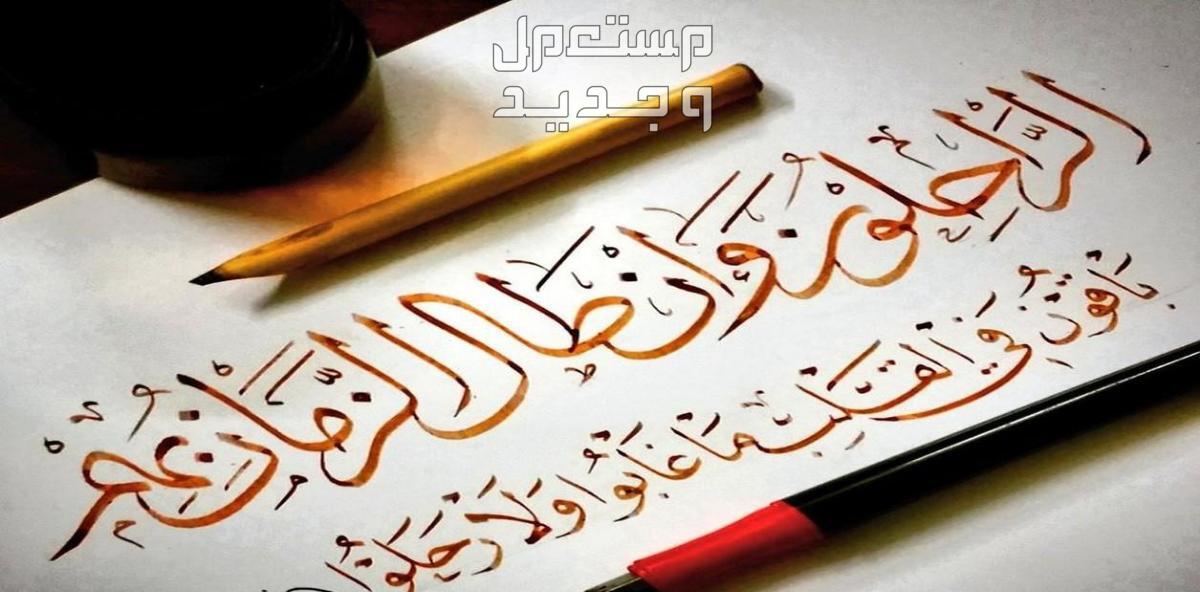 مستعمل
وجديد
الرَّاحِلُونَ وَإِنْ طَالَ الزَّمَانُ بِهِمْ
بَاقُونَ فِي الْقَلْبِ مَا غَابُوا وَلَا رَحَلُوا